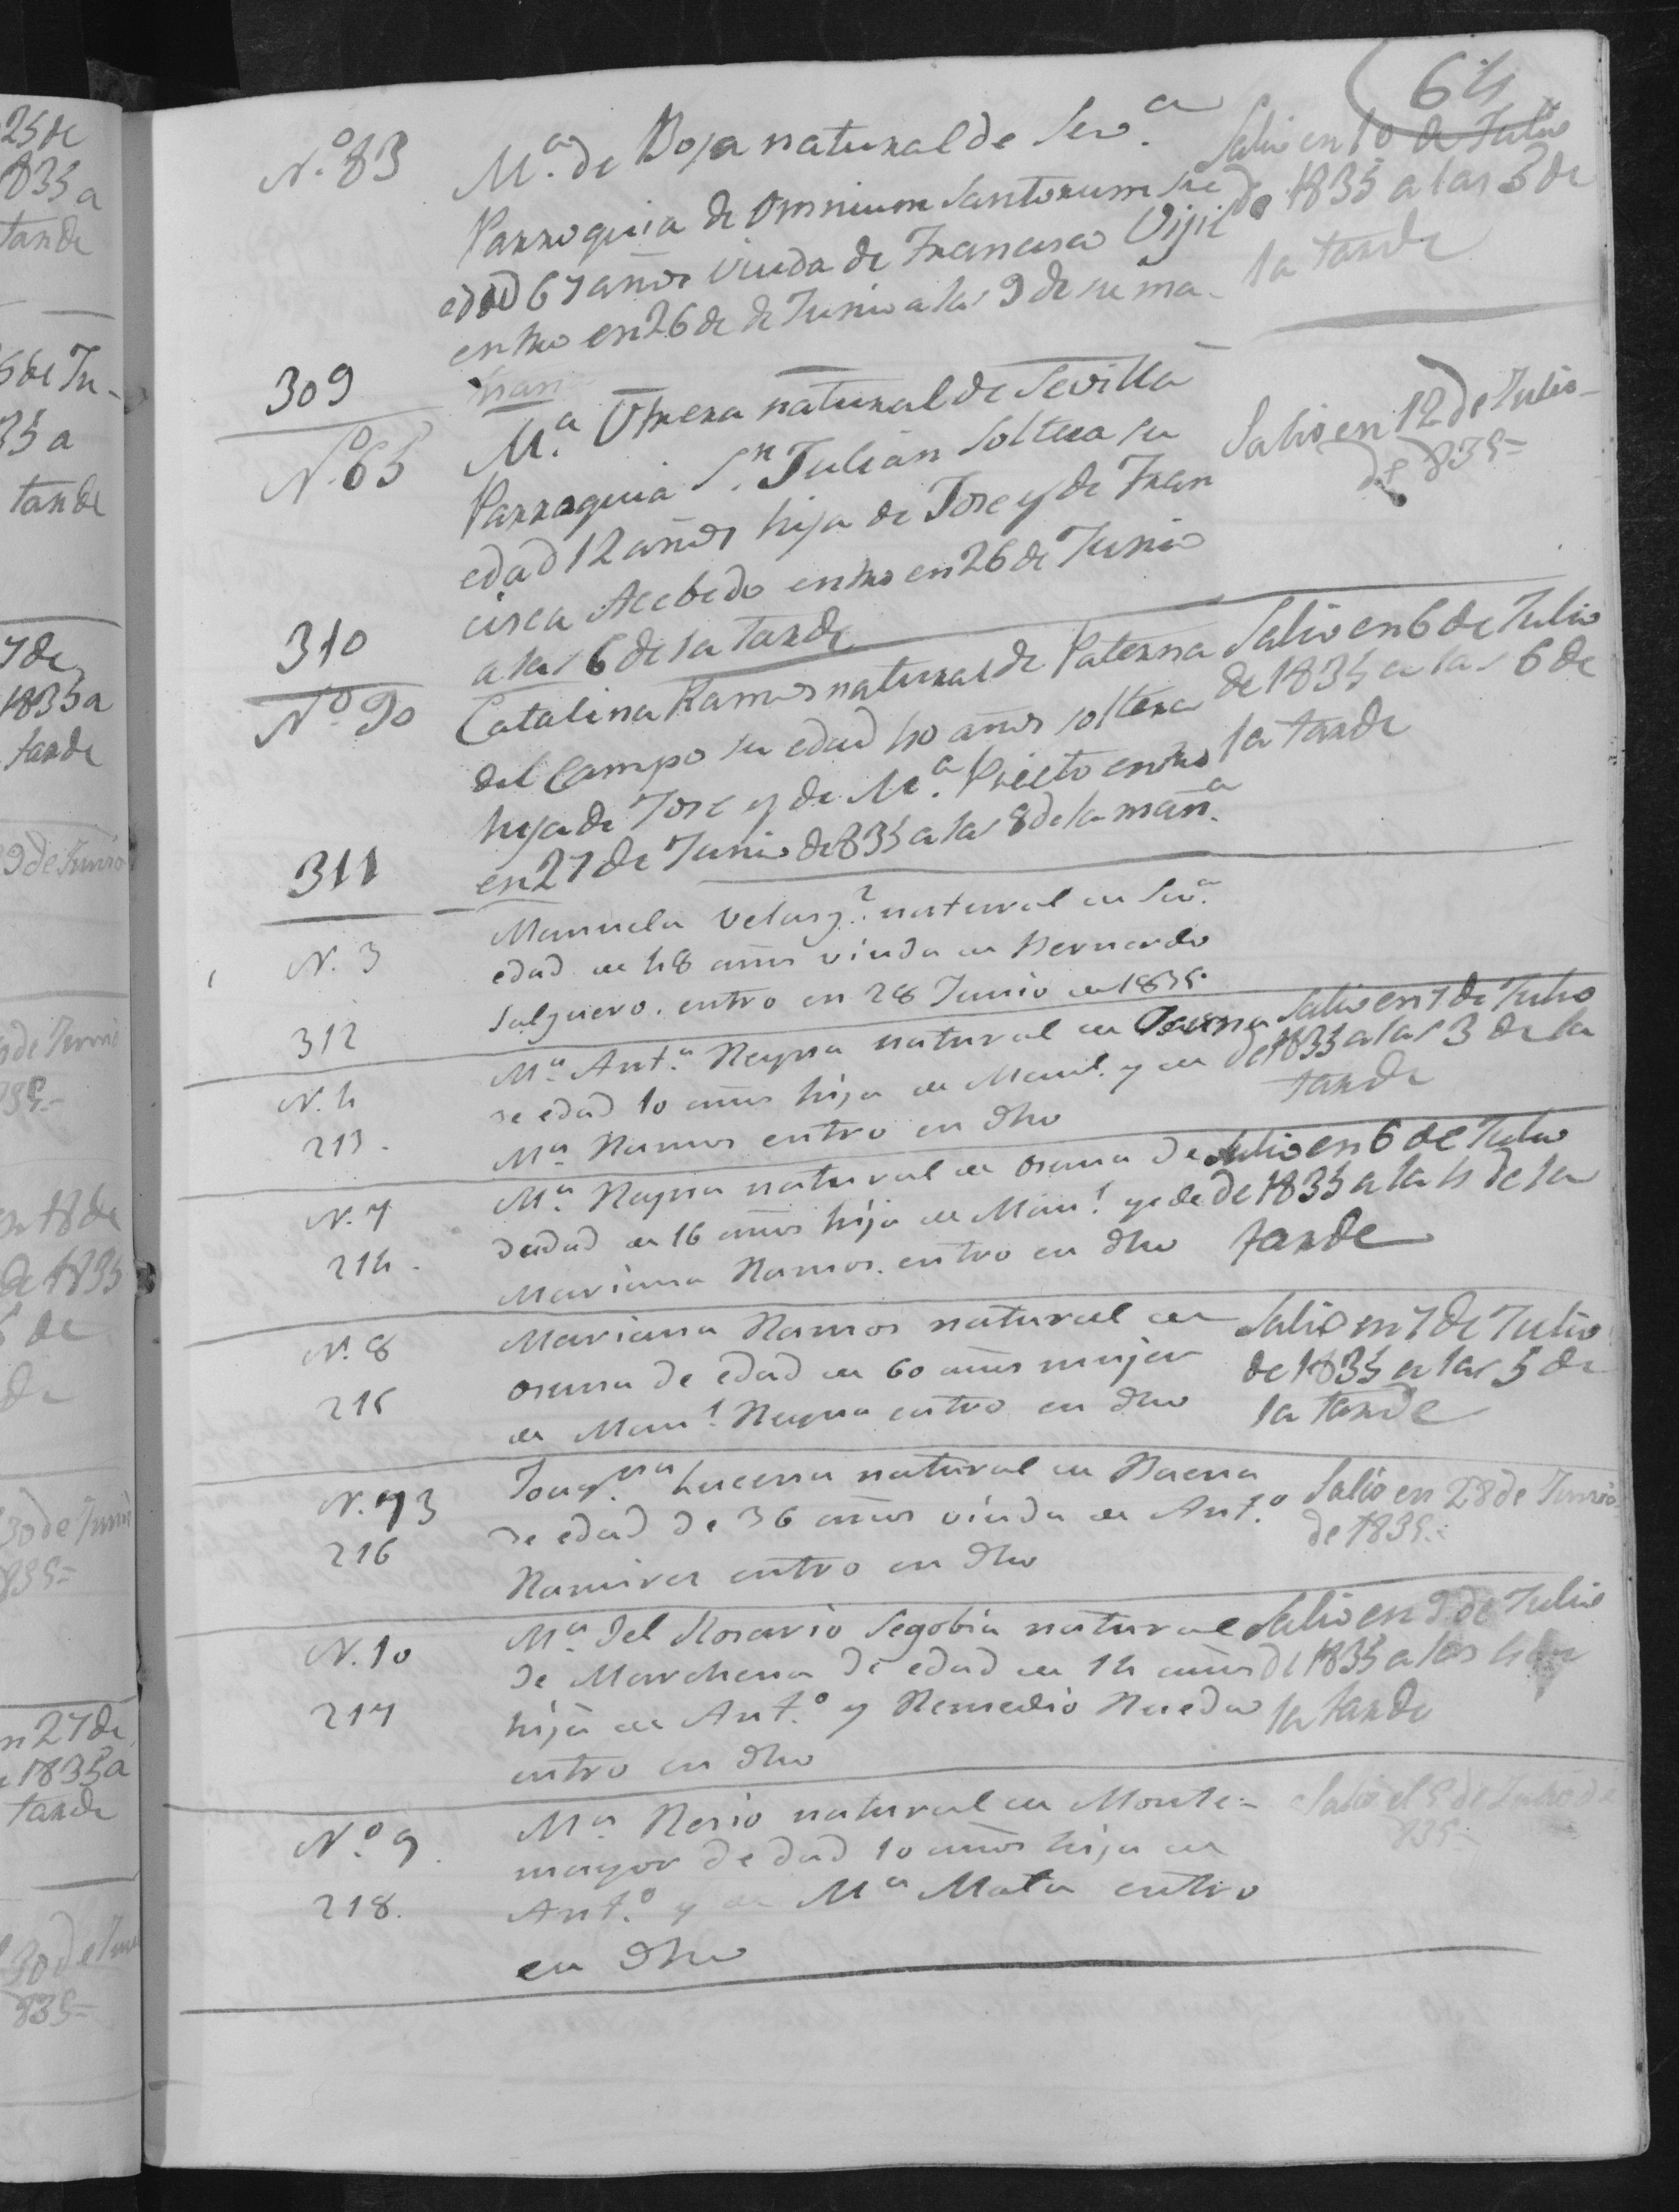 64
N.º 83
M.ª de Boja natural de Sev.ª
Parroquia de Omnium Santorum su
edad 67 años viuda de Francisco Vijil
entro en 26 de de Junio a las 9 de su ma-
ñan
Salio en 10 de Julio
de 1835 a las 5 de
la tarde
309
N.º 65
M.ª Utrera natural de Sevilla
Parroquia S.n Julian soltera su
edad 12 años hija de Jose y de Fran
cisca Acebedo entro en 26 de Junio
a las 6 de la tarde
Salio en 12 de Julio
de 835=
310
Nº 90
Catalina Ramos natural de Paterna
del Campo su edad 40 años soltera
hija de Jose y de M.ª Prieto entro
en 27 de Junio de 835 a las 8 de la mañ.ª
Salio en 6 de Julio
de 1835 a las 6 de
la tarde
311
N. 3
312
Manuela Velasq.z natural de Sev.ª
edad de 48 años viuda de Bernardo
Salguero. entro en 28 Junio de 1835.
N. 4
213.
M.ª Ant.ª Reyna natural de Osuna
de edad 10 años hija de Manl. y de
M.ª Ramos entro en dho
Salio en 7 de Julio
de 1835 a las 3 de la
tarde
N. 7
214.
M.ª Reyna natural de osuna de
dadad de 16 años hija de Man.l y de
Mariana Ramos. entro en dho
Salio en 6 de Julio
de 1835 a la 4 de la
tarde
N. 8
215
Mariana Ramos natural de
osuna de edad de 60 años mujer
de Man.l Reyna entro en dho
Salio en 7 de Julio
de 1835 a las 5 de
la tarde
N. 73
216
Joaq.na Lucena natural de Baena
de edad de 36 años viuda de Ant.º
Ramires entro en dho
Salio en 28 de Junio
de 1835.=
N. 10
217
M.ª del Rosario Segobia natural
de Marchena de edad de 14 años
hija de Ant.º y Remedio Rueda
entro en dho
Salio en 9 de Julio
de 1835 a las 4 de
la tarde
N.º 9
218.
M.ª Rosio natural de Monte=
mayor de dad 10 años hija de
Ant.º y de M.ª Mata entro
en dho
Salio el 5 de Julio de
835=